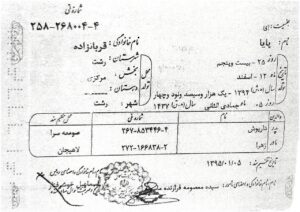 شماره ملی
۲۵۸-۲۶۸۰۰۴-۴
نام: پاپا
نام خانوادگی: قربانزاده
روز ۲۵ - بیست وپنجم
ماه ۱۲ - اسفند
سال (ه.ش) ۱۳۹۴ - یک هزار وسیصد ونود وچهار
روز ۰۵ ماه جمادی الثانی سال (ه.ق) ۱۴۳۷
شهرستان: رشت
بخش: مرکزی
دهستان:
شهر: رشت
نام
شماره ملی
پدر داریوش ۲۶۷-۸۵۳۴۴۶-۴ صومعه سرا
مادر زهرا ۲۷۲-۱۶۶۸۳۸-۲ لاهیجان
۱۳۹۵/۰۱/۰۵
سیده معصومه فرازنده